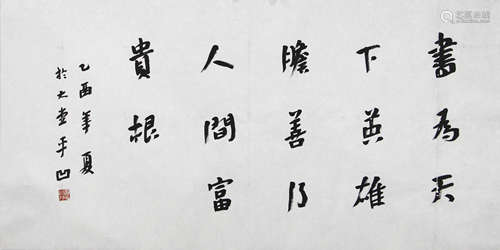 書為天
下英雄
膽善乃
人間富
貴根
乙酉年夏
於大堂平凹